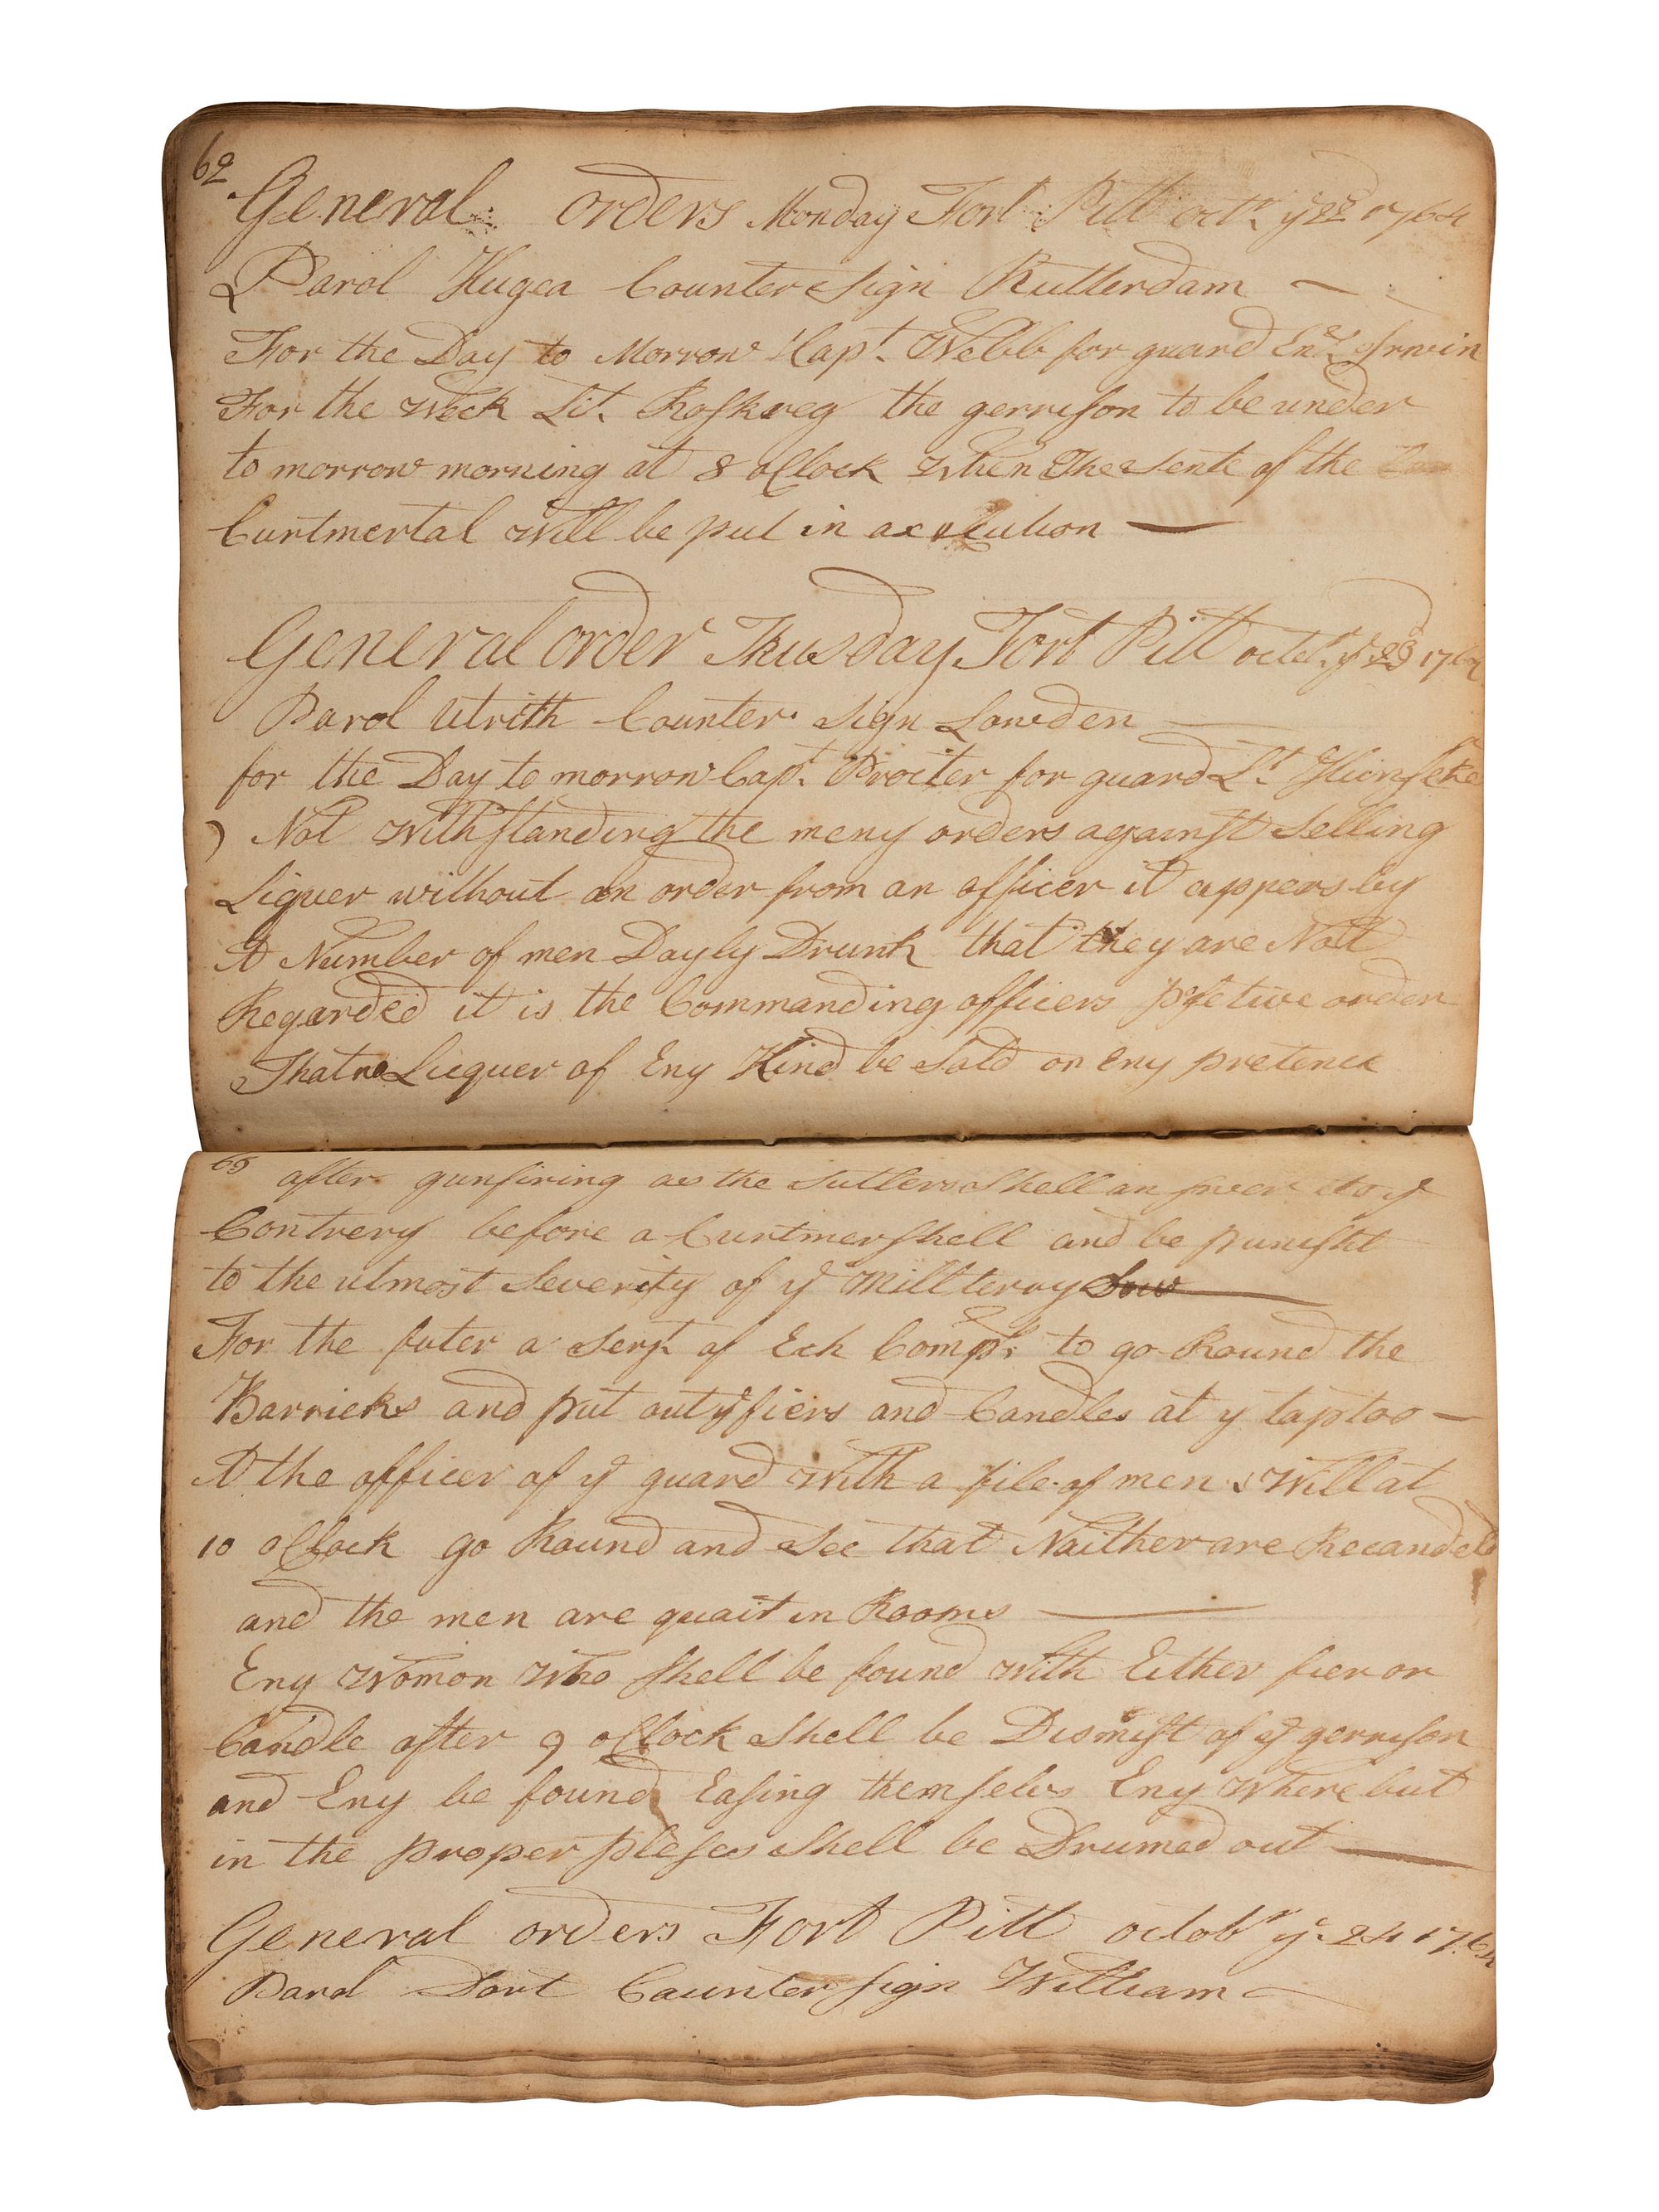 62
General orders Monday Fort Pitt octr. ye 22d 1764
Parol Hugea Counter Sign Rutterdam
For the Day to Morrow Capt. Webb for guard Ens. Irwin
For the Week Lit. Roskreg the gerrison to be under
to morrow morning at 8 oClock When The Sente of the
Curtmertal Will be put in axecution
General order Thusday Fort Pitt octobr. ye 23d 1764
Parol Utrith Counter Sign Lowden
for the Day to morrow Capt. Procter for guard Lt.
Not Withstanding the meny orders against Selling
Liquer without an order from an officer it appers by
A Number of men Dayly Drunk that they are Nott
Regarded it is the Commanding officers order
That no Liequer of Eny Kind be Sold on Eny pretence
63
after gunfiring as the Sutlers Shell answer ye
Contrery before a Curtmershell and be punisht
to the utmost Severity of ye Millteray Low
For the futer a Serjt. of Ech Comp. to go Round the
Barricks and put out ye fiers and Candles at ye taptoo
A the officer of ye guard With a file of men Will at
10 oClock go Round and See that Naither are Recandeld
and the men are quait in Rooms
Eny Womon Who Shell be found With Either fier or
Candle after 9 oClock Shell be Dismist of ye gerrison
and Eny be found Easing themselvs Eny Where but
in the proper pleses Shell be Drumed out
General orders Fort Pitt octobr. ye 24 1764
Parol Dort Counter sign William